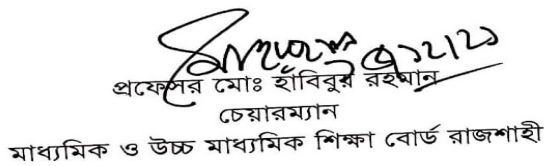 প্রফেসর মোঃ হাবিবুর রহমান
চেয়ারম্যান
মাধ্যমিক ও উচ্চ মাধ্যমিক শিক্ষা বোর্ড রাজশাহী